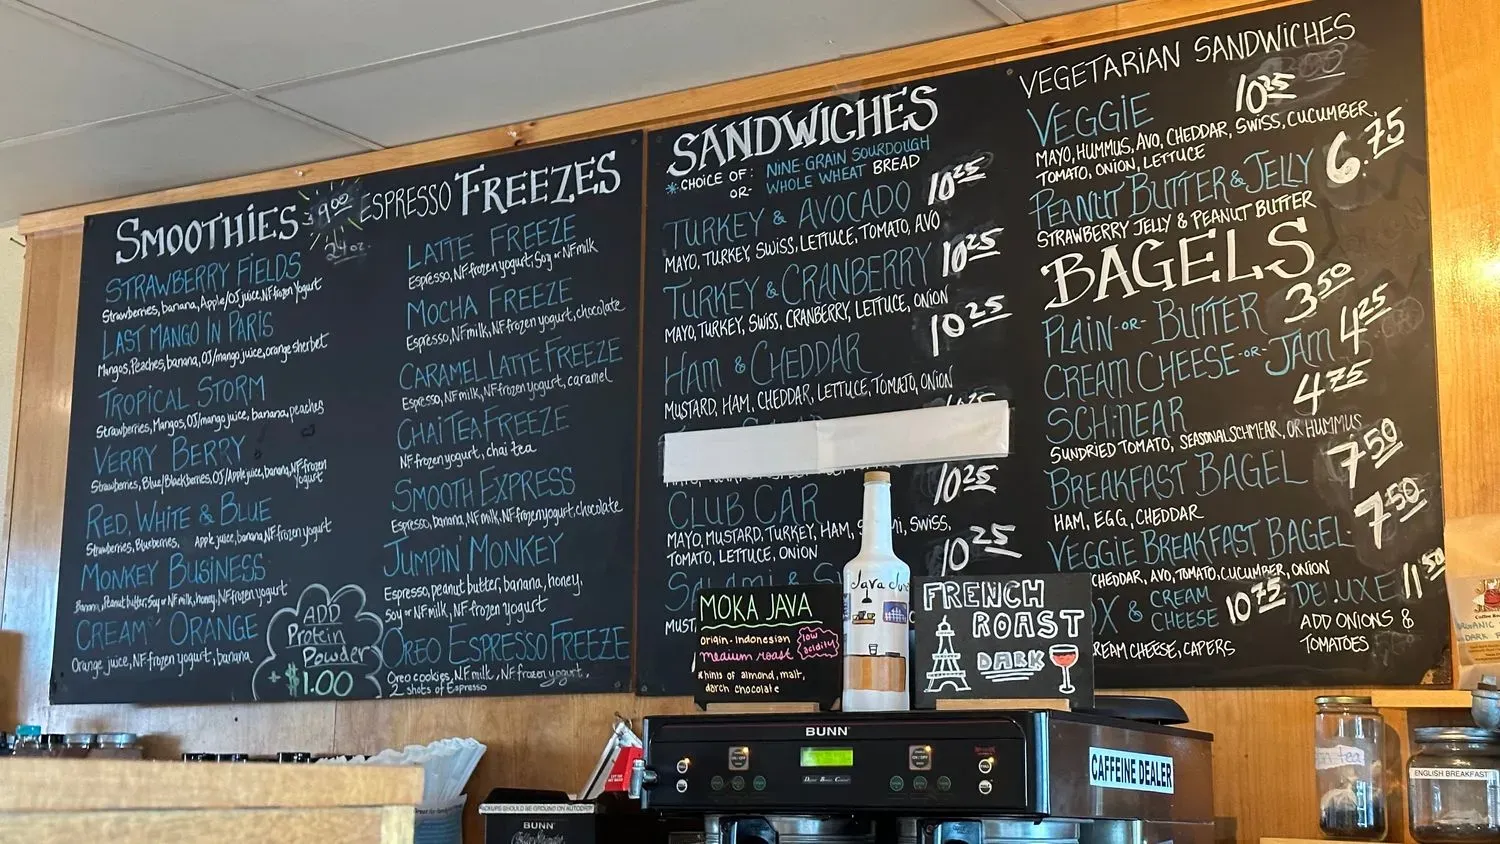 SMOOTHIES 9.00
24 oz.
STRAWBERRY FIELDS
Strawberries, banana, Apple/OJ juice, NF frozen Yogurt
LAST MANGO IN PARIS
Mangos, Peaches, banana, OJ/mango juice, orange sherbet
TROPICAL STORM
Strawberries, Mangos, OJ/mango juice, banana, peaches
VERRY BERRY
Strawberries, Blue/Blackberries, OJ/Apple juice, banana, NF frozen
yogurt
RED, WHITE & BLUE
Strawberries, Blueberries, Apple juice, banana, NF frozen yogurt
MONKEY BUSINESS
Banana, Peanut butter, Soy or NF milk, honey, NF frozen yogurt
CREAM ORANGE
Orange juice, NF frozen yogurt, banana
ADD
Protein
Powder
+ $1.00
ESPRESSO FREEZES
LATTE FREEZE
Espresso, NF frozen yogurt, Soy or NF milk
MOCHA FREEZE
Espresso, NF milk, NF frozen yogurt, chocolate
CARAMEL LATTE FREEZE
Espresso, NF milk, NF frozen yogurt, caramel
CHAI TEA FREEZE
NF frozen yogurt, chai tea
SMOOTH EXPRESS
Espresso, banana, NF milk, NF frozen yogurt, chocolate
JUMPIN' MONKEY
Espresso, peanut butter, banana, honey,
Soy or NF milk, NF frozen yogurt
OREO ESPRESSO FREEZE
Oreo cookies, NF milk, NF frozen yogurt,
2 shots of Espresso
SANDWICHES
*CHOICE OF: NINE-GRAIN SOURDOUGH
-OR- WHOLE WHEAT BREAD
TURKEY & AVOCADO 10.25
MAYO, TURKEY, SWISS, LETTUCE, TOMATO, AVO
TURKEY & CRANBERRY 10.25
MAYO, TURKEY, SWISS, CRANBERRY, LETTUCE, ONION
HAM & CHEDDAR 10.25
MUSTARD, HAM, CHEDDAR, LETTUCE, TOMATO, ONION
CLUB CAR 10.25
MAYO, MUSTARD, TURKEY, HAM, SWISS,
TOMATO, LETTUCE, ONION
SALAMI & 10.25
VEGETARIAN SANDWICHES
VEGGIE 10.25
MAYO, HUMMUS, AVO, CHEDDAR, SWISS, CUCUMBER,
TOMATO, ONION, LETTUCE
PEANUT BUTTER & JELLY 6.75
STRAWBERRY JELLY & PEANUT BUTTER
BAGELS
PLAIN -OR- BUTTER 3.50
CREAM CHEESE -OR- JAM 4.25
SCHMEAR 4.75
SUNDRIED TOMATO, SEASONAL SCHMEAR, OR HUMMUS
BREAKFAST BAGEL 7.50
HAM, EGG, CHEDDAR
VEGGIE BREAKFAST BAGEL 7.50
CHEDDAR, AVO, TOMATO, CUCUMBER, ONION
& CREAM CHEESE 10.75 DELUXE 11.50
CREAM CHEESE, CAPERS
ADD ONIONS &
TOMATOES
MOKA JAVA
origin - Indonesian
medium roast
low
acidity
hints of almond, malt,
darch chocolate
Java
FRENCH
ROAST
DARK
BUNN
CAFFEINE DEALER
BUNN
ENGLISH BREAKFAST